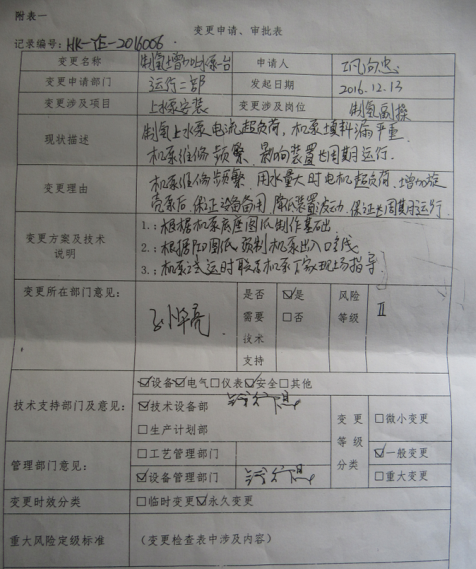 附表一
变更申请、审批表
记录编号：HK-运-2016006
变更名称 制氢增加上水泵一台 申请人
变更申请部门 运行二部 发起日期 2016.12.13
变更涉及项目 上水泵安装 变更涉及岗位 制氢副操
现状描述 制氢上水泵电流超负荷，机泵填料漏严重，
机泵维修频繁，影响装置长周期运行。
变更理由 机泵维修频繁，用水量大时电机超负荷，增加旋
壳泵后，保证设备备用，降低装置波动，保证长周期运行
变更方案及技术说明 1.：根据机泵底座图纸制作基础
2.：根据PID图纸，预制机泵出入口配线
3.：机泵试运时联系机泵厂家现场指导
变更所在部门意见： 是否需要技术支持 ☑是 □否 风险等级 Ⅱ
技术支持部门及意见： ☑设备☑电气□仪表☑安全□其他
☑技术设备部
□生产计划部
变更等级分类 □微小变更
☑一般变更
□重大变更
管理部门意见： □工艺管理部门
☑设备管理部门
变更时效分类 □临时变更☑永久变更
重大风险定级标准 （变更检查表中涉及内容）